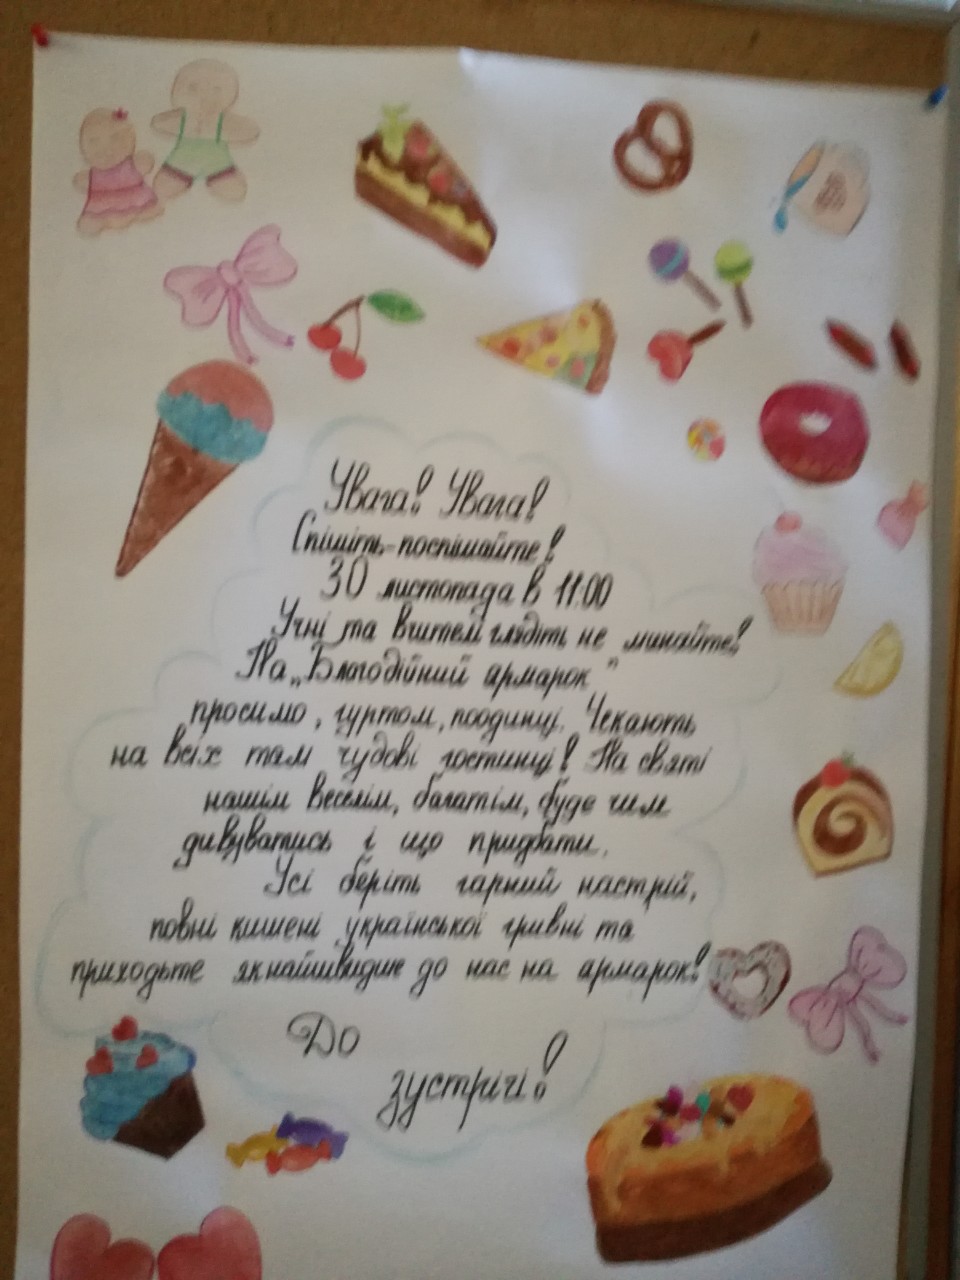 Увага! Увага!
Спішіть-поспішайте!
30 листопада в 11:00
Учні та вчителі глядіть не минайте!
На „Благодійний ярмарок"
просимо, гуртом, поодинці. Чекають
на всіх там чудові гостинці! На святі
нашім веселім, багатім, буде чим
дивуватись і що придбати.
Усі беріть гарний настрій,
повні кишені української гривні та
приходьте якнайшвидше до нас на ярмарок!
До
зустрічі!